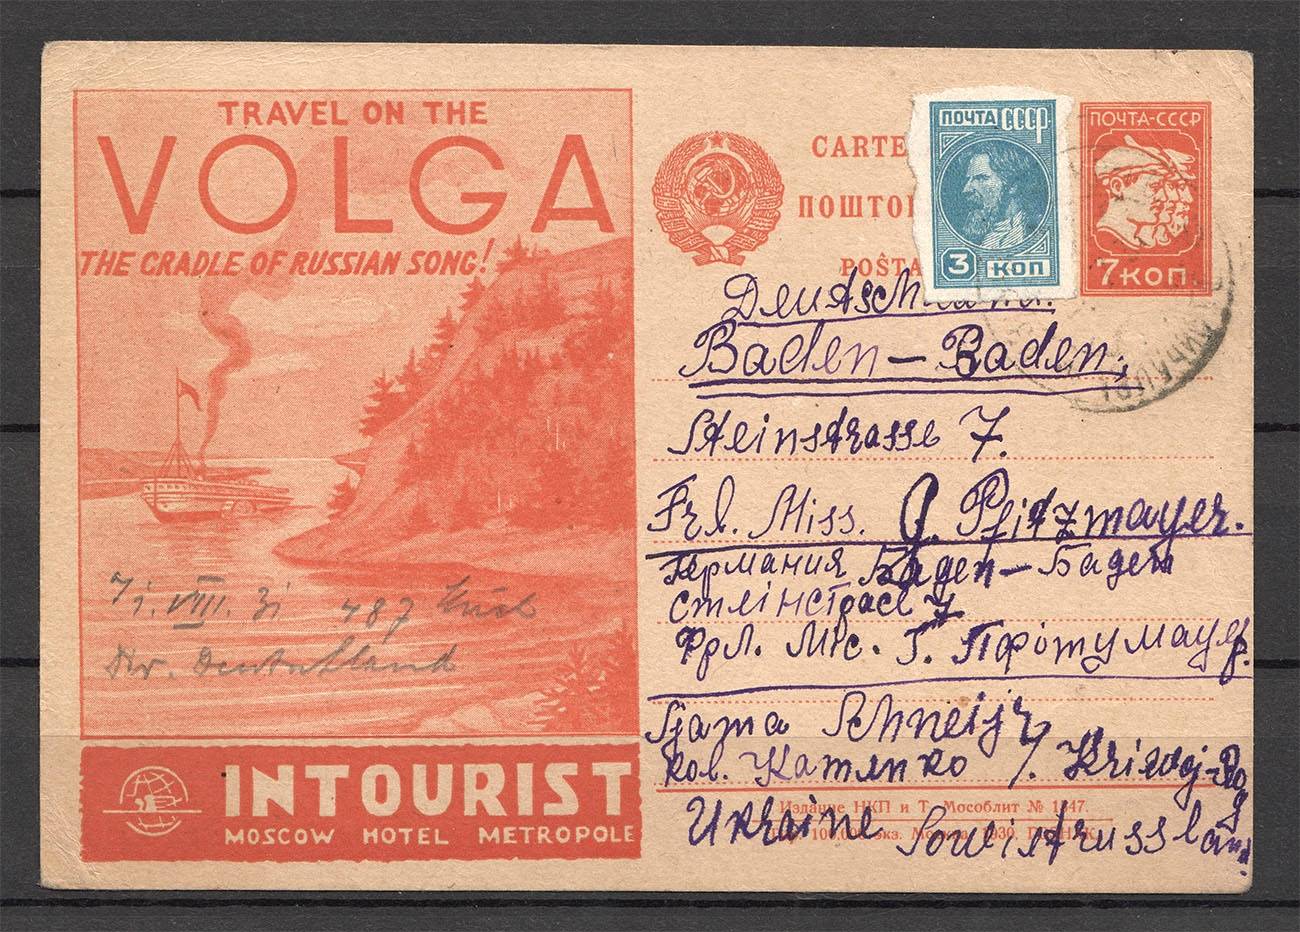 TRAVEL ON THE
VOLGA
THE CRADLE OF RUSSIAN SONG!
7/1. VIII. 31 487
Deutschland
INTOURIST
MOSCOW HOTEL METROPOLE
CARTE
ПОШТО
POSTA
ПОЧТА СССР
3 КОП
ПОЧТА-СССР
7 КОП
Deutschland.
Baden-Baden,
Steinstrasse 7.
Frl. Miss. G. Pfitzmayer.
Германия Баден-Баден
7
Фрл. Міс. Г.
Schneijr
кол. / Kriwoj-Rog
Ukraine Sowietrussland.
Издание НКП и Т. Мособлит № 1847.
100.000 экз. Москва 1930.